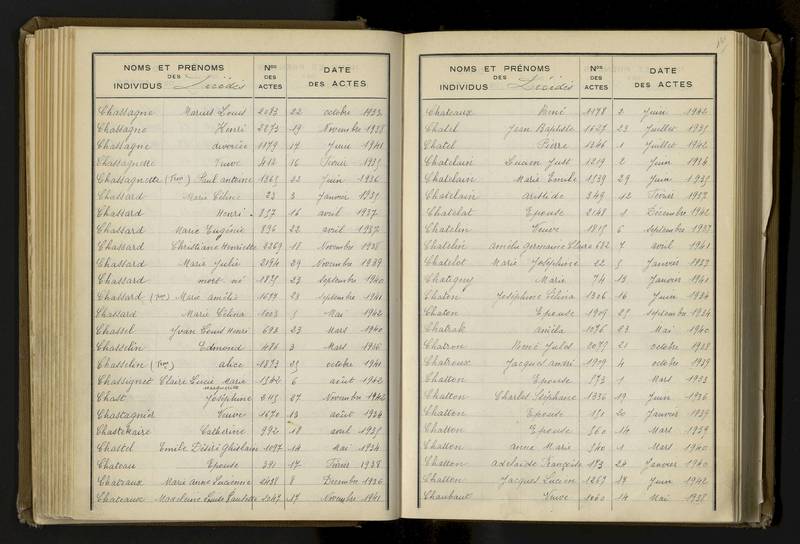 NOMS ET PRÉNOMS DES INDIVIDUS Décédés Nos DES ACTES DATE DES ACTES
Chassagne Marius Louis 2083 22 octobre 1933
Chassagne Henri 2273 19 Novembre 1938
Chassagne divorcée 1179 17 Juin 1941
Chassagnette Veuve 412 16 Février 1935
Chassagnette Paul antoine 1365 22 Juin 1936
Chassard Marie Céline 23 3 Janvier 1935
Chassard Henri 857 16 avril 1937
Chassard Marie Eugénie 896 22 avril 1937
Chassard Christiane Henriette 2269 18 Novembre 1938
Chassard Marie Julie 2194 29 Novembre 1939
Chassard mort né 1835 23 septembre 1940
Chassard (Vve) Marie amélie 1699 23 septembre 1941
Chassard Marie Célina 1003 5 Mai 1942
Chassel Yvan Louis Henri 693 23 Mars 1940
Chasselin Edmond 486 3 Mars 1936
Chasselin (Vve) alice 1873 25 octobre 1941
Chassignet Claire Lucie Marie 1542 6 août 1942
marguerite
Chast Joséphine 2115 27 Novembre 1942
Chastagnier Veuve 1670 13 août 1934
Catherine 992 18 avril 1935
Chastel Emile Désiré Ghislain 1097 14 Mai 1934
Chateau Epouse 391 17 Février 1938
Chateaux Marie Anne Lucienne 2438 8 Décembre 1936
Chateaux Madeleine 2047 17 Novembre 1941
NOMS ET PRÉNOMS DES INDIVIDUS Décédés Nos DES ACTES DATE DES ACTES
Chateaux René 1178 2 Juin 1942
Chatel Jean Baptiste 1627 23 Juillet 1935
Chatel Pierre 1346 1 Juillet 1942
Chatelain Lucien Just 1219 2 Juin 1934
Chatelain Marie Emile 1539 29 Juin 1935
Chatelain aristide 349 12 Février 1937
Chatelat Epouse 2148 1 Décembre 1942
Chatelin Veuve 1815 6 septembre 1937
Chatelin amélie germanie Claire 682 7 avril 1941
Chatelot Marie Joséphine 52 5 Janvier 1937
Chatigny Marie 74 13 Janvier 1940
Chaton Joséphine Célina 1306 16 Juin 1934
Chaton Epouse 1909 25 septembre 1934
Chatrak aniéla 1076 23 Mai 1940
Chatron René Jules 2075 21 octobre 1938
Chatroux Jacques andré 1909 4 octobre 1939
Chatton Epouse 573 1 Mars 1933
Chatton Charles Stéphane 1336 19 Juin 1936
Chatton Epouse 151 20 Janvier 1939
Chatton Epouse 560 14 Mars 1939
Chatton anne Marie 540 1 Mars 1940
Chatton adelaïde Françoise 173 24 Janvier 1940
Chatton Jacques Lucien 1269 17 Juin 1942
Chaubaut Veuve 1040 14 Mai 1938